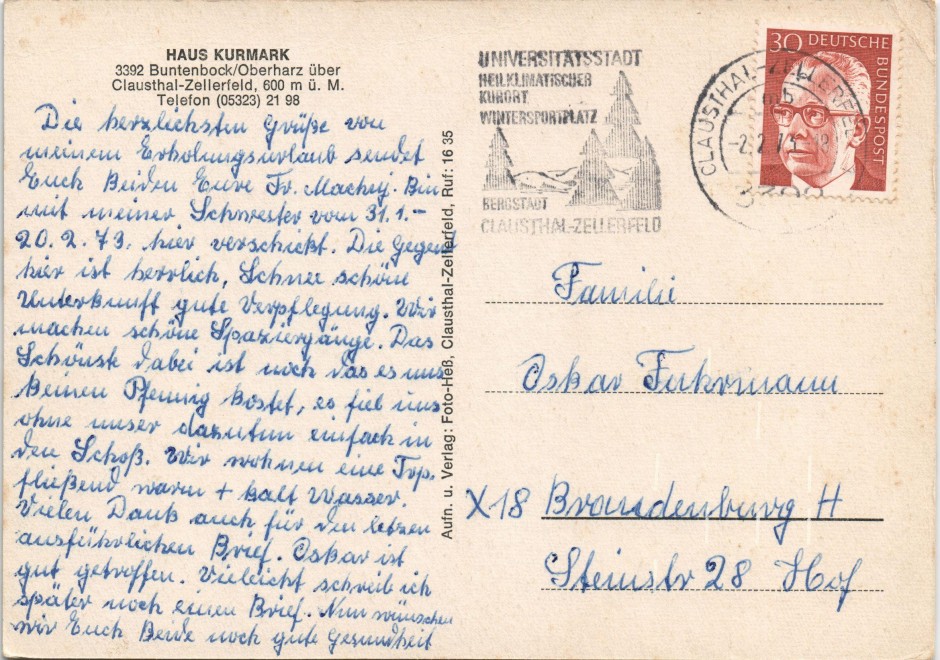 HAUS KURMARK
3392 Buntenbock/Oberharz über
Clausthal-Zellerfeld, 600 m ü. M.
Telefon (05323) 21 98
Die herzlichsten Grüße von
meinem Erholungsurlaub sendet
Euch Beiden Eure Fr. Machuj. Bin
mit meiner Schwester vom 31.1.–
20.2.73. hier verschickt. Die Gegend
hier ist herrlich, Schnee schöne
Unterkunft gute Verpflegung. Wir
machen schöne Spaziergänge. Das
Schönste dabei ist noch das es uns
keinen Pfennig kostet, es fiel uns
ohne unser dazutun einfach in
den Schoß. Wir wohnen eine Trp.
fließend warm + kalt Wasser.
Vielen Dank auch für den letzen
ausführlichen Brief. Oskar ist
gut getroffen. Vielleicht schreib ich
später noch einen Brief. Nun wünschen
wir Euch Beide noch gute Gesundheit
Aufn. u. Verlag: Foto-Heß, Clausthal-Zellerfeld, Ruf: 16 35
UNIVERSITÄTSSTADT
HEILKLIMATISCHER
KURORT
WINTERSPORTPLATZ
BERGSTADT
CLAUSTHAL-ZELLERFELD
CLAUSTHAL-ZELLERFELD
mb
30 DEUTSCHE
BUNDESPOST
Familie
Oskar Fuhrmann
X18 Brandenburg H
Steinstr 28 Hof